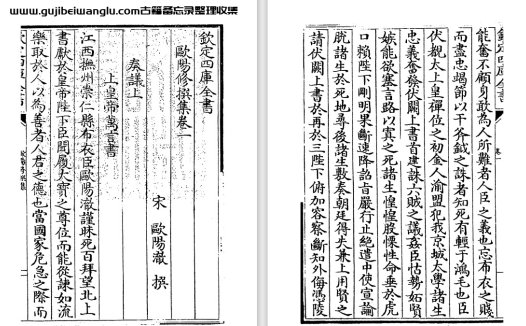 www.gujibeiwanglu.com古籍备忘录整理收集
欽定四庫全書
歐陽修撰集卷一
宋 歐陽澈 撰
奏議上
上皇帝萬言書
江西撫州崇仁縣布衣臣歐陽澈謹昧死百拜望北上
書獻於皇帝陛下臣聞履大寶之尊位而能從諫如流
樂取於人以為善者人君之德也當國家危急之際而
欽定四庫全書
能奮不顧身敢為人所難者人臣之義也忘布衣之賤
而盡忠竭節以干斧鉞之誅者知死有輕于鴻毛也臣
伏覩太上皇禪位之初金人渝盟犯我京城太學諸生
忠義奮發伏闕上書首建誅六賊之議姦臣怙勢妬賢
嫉能欲塞言路以寘之死諸生惶惶股慄性命垂於虎
口賴陛下剛明果斷連降詔旨嚴行止絶遣中使宣諭
脱諸生於死地尋後諸生數奏朝廷得失兼上用賢之
請伏闕上書於再於三陛下俯加容察斷知外侮馮陵